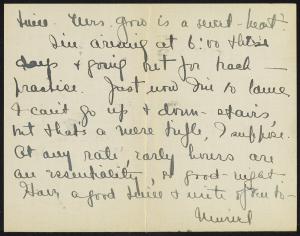 time. Mrs. Grow is a sweet-heart.
I'm arising at 6:00 these
days & going out for track
practice. Just now I'm so lame
I can't go up & down-stairs,
but that's a mere trifle, I suppose.
At any rate, early hours are
an essentiality, so good-night.
Have a good time & write often to-
Muriel